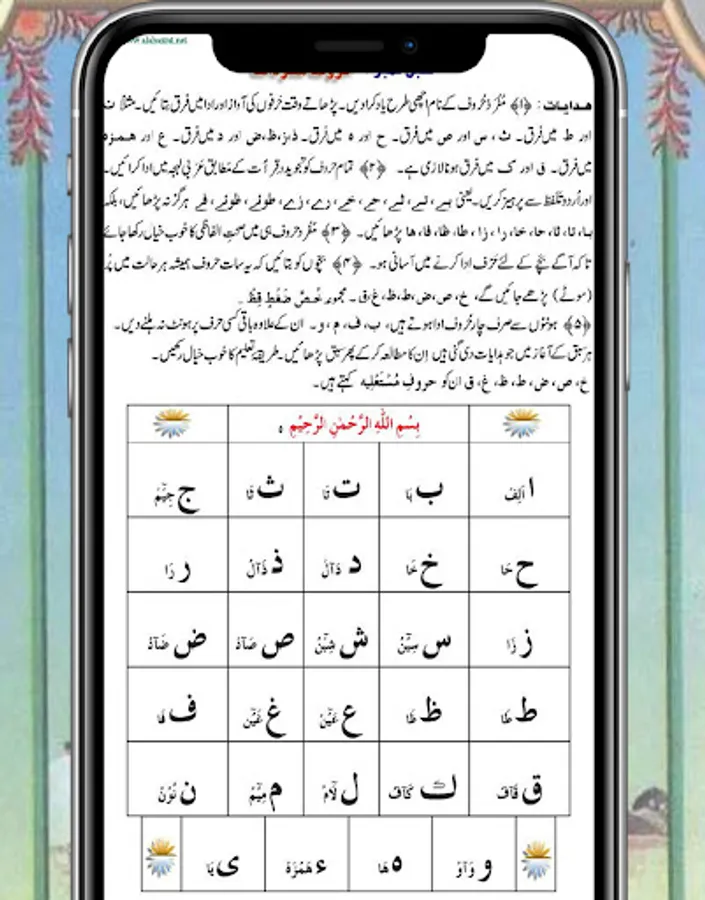 هدایات : ﴿۱﴾ مفرد حروف کے نام اچھی طرح یاد کرا دیں۔ پڑھاتے وقت حرفوں کی آواز اور ادا میں فرق بتائیں۔ مثلاً ت
اور ط میں فرق۔ ث، س اور ص میں فرق۔ ح اور ہ میں فرق۔ ذ، ز، ظ، ض اور د میں فرق۔ ع اور همزه
میں فرق۔ ق اور ک میں فرق ہونا لازمی ہے۔ ﴿۲﴾ تمام حروف کو تجوید و قرأت کے مطابق عربی لہجہ میں ادا کرائیں۔
اور اُردو تلفظ سے پرہیز کریں۔ یعنی بے، تے، ثے، حے، خے، رے، زے، طوئے، ظوئے، فے ہرگز نہ پڑھائیں، بلکہ
با، تا، ثا، حا، خا، را، زا، طا، ظا، فا، ها پڑھائیں۔ ﴿۳﴾ مفرد حروف ہی میں صحت الفاظی کا خوب خیال رکھا جائے
تاکہ آگے بچے کے لئے حرف ادا کرنے میں آسانی ہو۔ ﴿۴﴾ بچوں کو بتائیں کہ یہ سات حروف ہمیشہ ہر حالت میں پُر
(موٹے) پڑھے جائیں گے، خ، ص، ض، ط، ظ، غ، ق۔ مجموعہ خُصَّ ضَغْطٍ قِظْ۔
﴿۵﴾ ہونٹوں سے صرف چار حروف ادا ہوتے ہیں، ب، ف، م، و۔ ان کے علاوہ باقی کسی حرف پر ہونٹ نہ ہلنے دیں۔
ہر سبق کے آغاز میں جو ہدایات دی گئی ہیں اِن کا مطالعہ کر کے پھر سبق پڑھائیں۔ طریقۂ تعلیم کا خوب خیال رکھیں۔
خ، ص، ض، ط، ظ، غ، ق ان کو حروفِ مُسْتَعْلِیه کہتے ہیں۔
بِسْمِ اللّٰهِ الرَّحْمٰنِ الرَّحِيْمِ ٥
ا اَلِفْ ب بَا ت تَا ث ثَا ج جِيْٓمْ
ح حَا خ خَا د دَآلْ ذ ذَآلْ ر رَا
ز زَا س سِيْٓنْ ش شِيْٓنْ ص صَآدْ ض ضَآدْ
ط طَا ظ ظَا ع عَيْٓنْ غ غَيْٓنْ ف فَا
ق قَآفْ ك كَآفْ ل لَآمْ م مِيْٓمْ ن نُوْٓنْ
و وَآوْ ه هَا ء هَمْزَهْ ى يَا